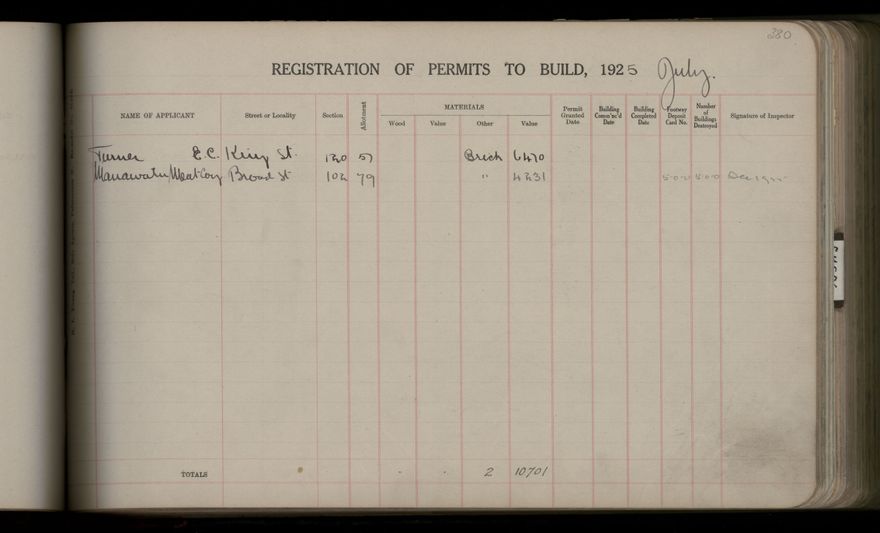 380
REGISTRATION OF PERMITS TO BUILD, 1925 July.
NAME OF APPLICANT Street or Locality Section Allotment MATERIALS Wood Value Other Value Permit Granted Date Building Comm'nc'd Date Building Completed Date Footway Deposit Card No. Number of Buildings Destroyed Signature of Inspector
Turner E.C. King St. 120 57 Brick 6470
Manawatu Meat Coy Broad St 102 79 " 4231 500 500
TOTALS - - 2 10701